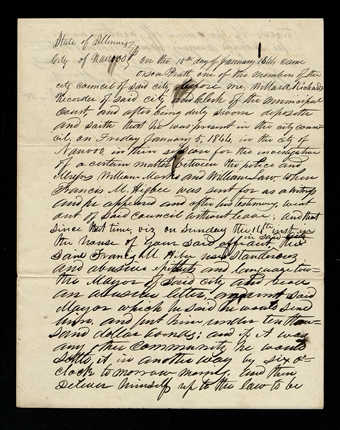 State of Illinois
City of Nauvoo } On the 10th day of January 1844 came
Orson Pratt one of the members of the
city council of said city before me, Willard Richards
Recorder of said city and clerk of the municipal
Court, and after being duly sworn deposeth
and saith that he was present in the city coun-
cil on Friday January 5, 1844, in the city of
Nauvoo in their session for the investigation
of a certain matter between the police and
Messrs William Marks and William Law, when
Francis M. Higbee was sent for as a witness
and he appeared and after his testimony, went
out of said council without leave; and that
since that time, viz on Sunday the inst in
the house of your said affiant, the
said Francis M. Higbee used slanderous
and abusive epithets and language to-
the Mayor of said city and read
an abusive letter, against said
Mayor which he said he would send
him, and put him under ten thou-
sand dollar bonds; and if it was
any other community, he would
settle it in another way by six o-
clock to morrow morning, and then
deliver himself up to the law to be